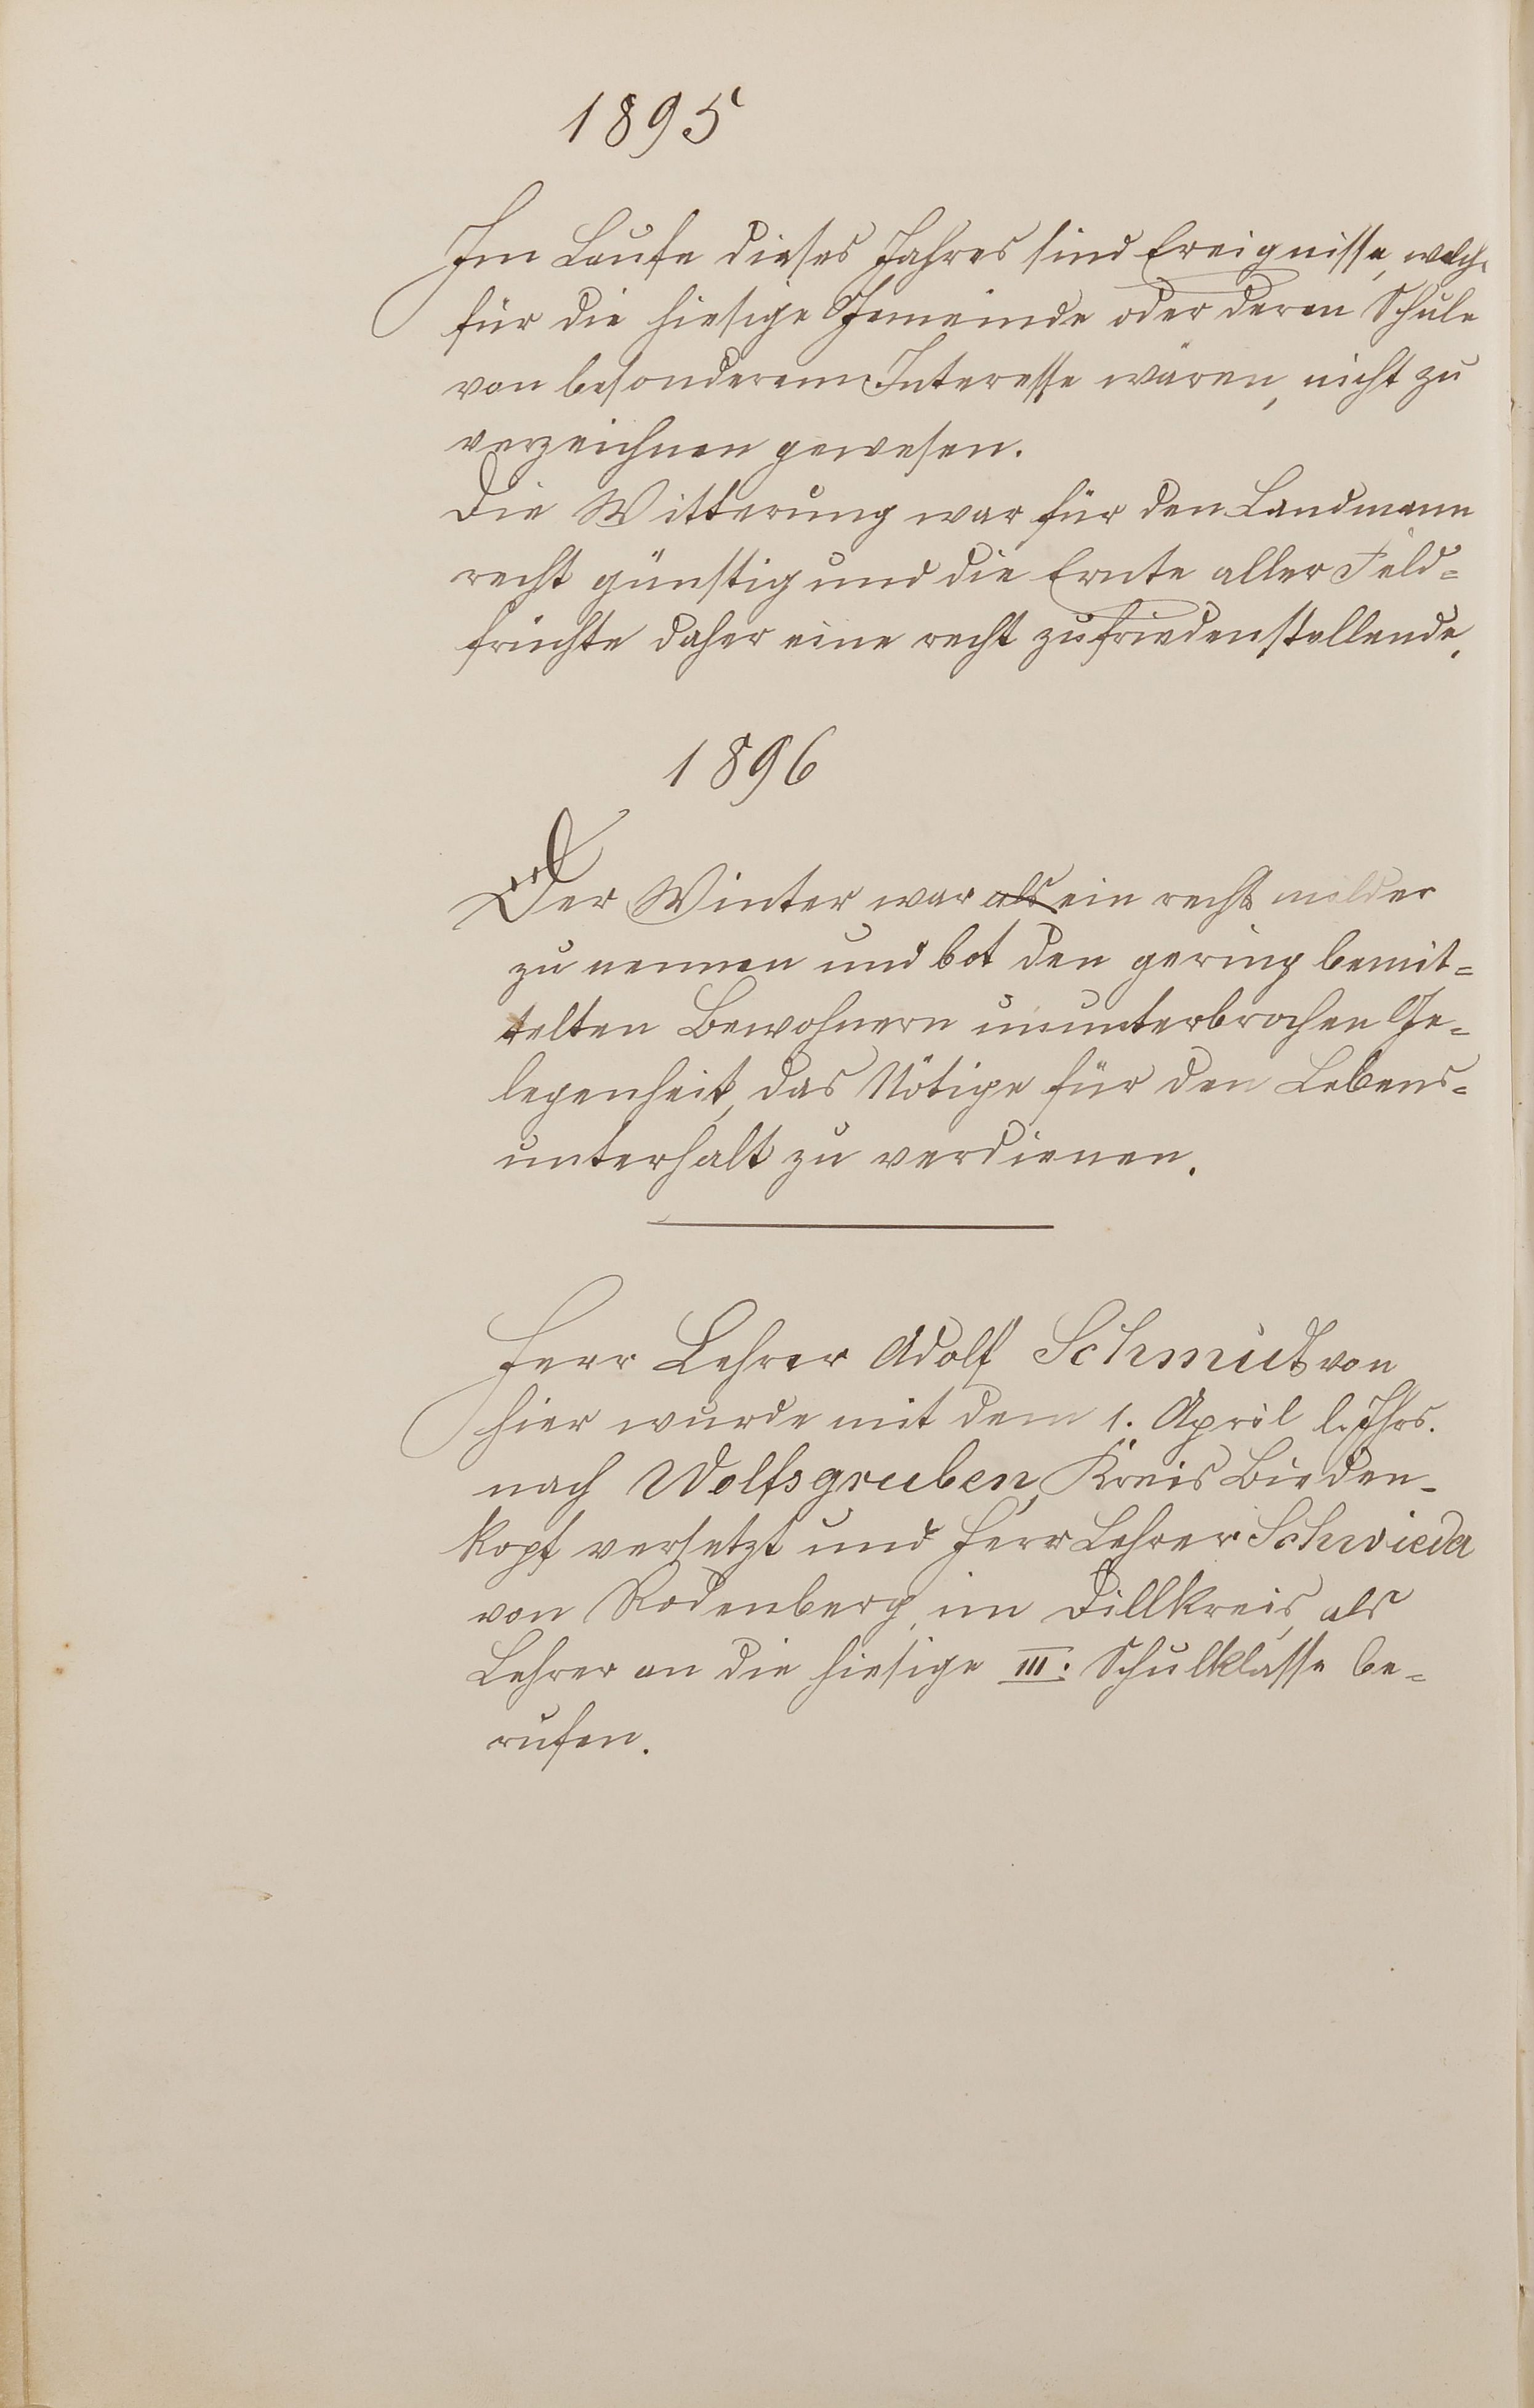 1895
Im Laufe dieses Jahres sind Ereignisse, welche
für die hiesige Gemeinde oder deren Schule
von besonderem Interesse wären, nicht zu
verzeichnen gewesen.
Die Witterung war für den Landmann
recht günstig und die Ernte aller Feld=
früchte daher eine recht zufriedenstellende.
1896
Der Winter war als ein recht milder
zu nennen und bot den gering bemit=
telten Bewohnern ununterbrochen Ge=
legenheit, das Nötige für den Lebens=
unterhalt zu verdienen.
Herr Lehrer Adolf Schmidt von
hier wurde mit dem 1. April l. Jhrs.
nach Wolfsgruben, Kreis Bieden-
kopf versetzt und Herr Lehrer Schwieda
von Rodenberg, im Dillkreis, als
Lehrer an die hiesige III. Schulklasse be=
rufen.